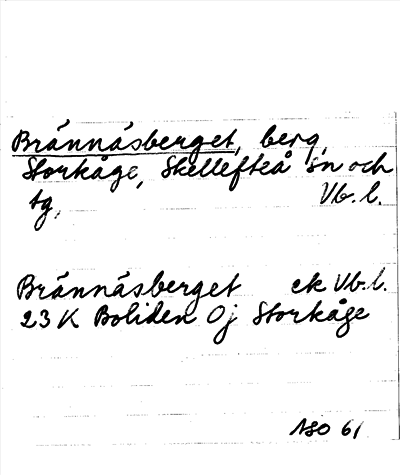 Brännäsberget, berg,
Storkåge, Skellefteå sn och
tg, Vb. l.
Brännäsberget ek Vb.l.
23 K Boliden 0j Storkåge
ASO 61